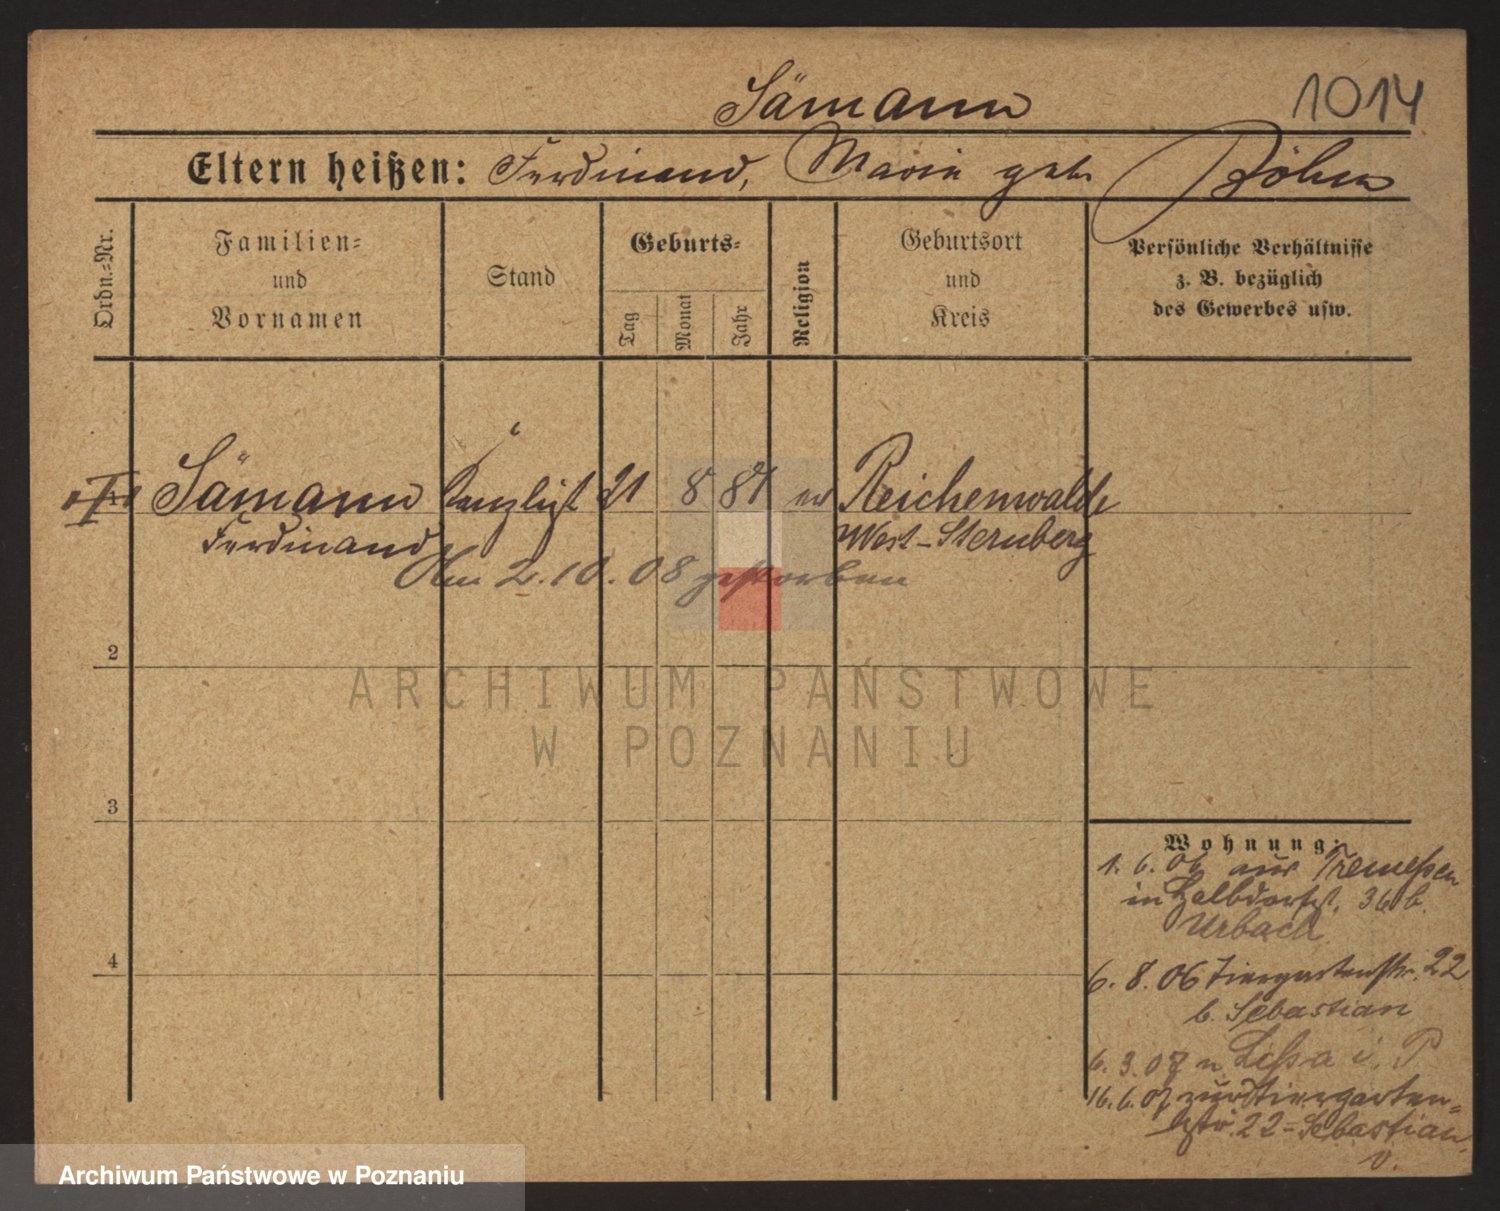 Sämann 1014
Eltern heißen: Ferdinand, Marie geb. Böhm
Ordn.=Nr.
Familien=
und
Vornamen
Stand
Geburts=
Tag
Monat
Jahr
Religion
Geburtsort
und
Kreis
Persönliche Verhältnisse
z. B. bezüglich
des Gewerbes usw.
Sämann Kanzlist 21 8 81 ev Reichenwalde
Ferdinand West-Sternberg
Am 2.10.08 gestorben
2
ARCHIWUM PAŃSTWOWE
W POZNANIU
3
Wohnung:
1.6.06 aus Tremessen
in Halbdorfst. 36 b.
Urbach
4
6.8.06 Tiergartenstr. 22
b. Sebastian
6.3.07 n Lissa i. P
16.6.07 zur Tiergarten=
str. 22 = Sebastian
v.
Archiwum Państwowe w Poznaniu